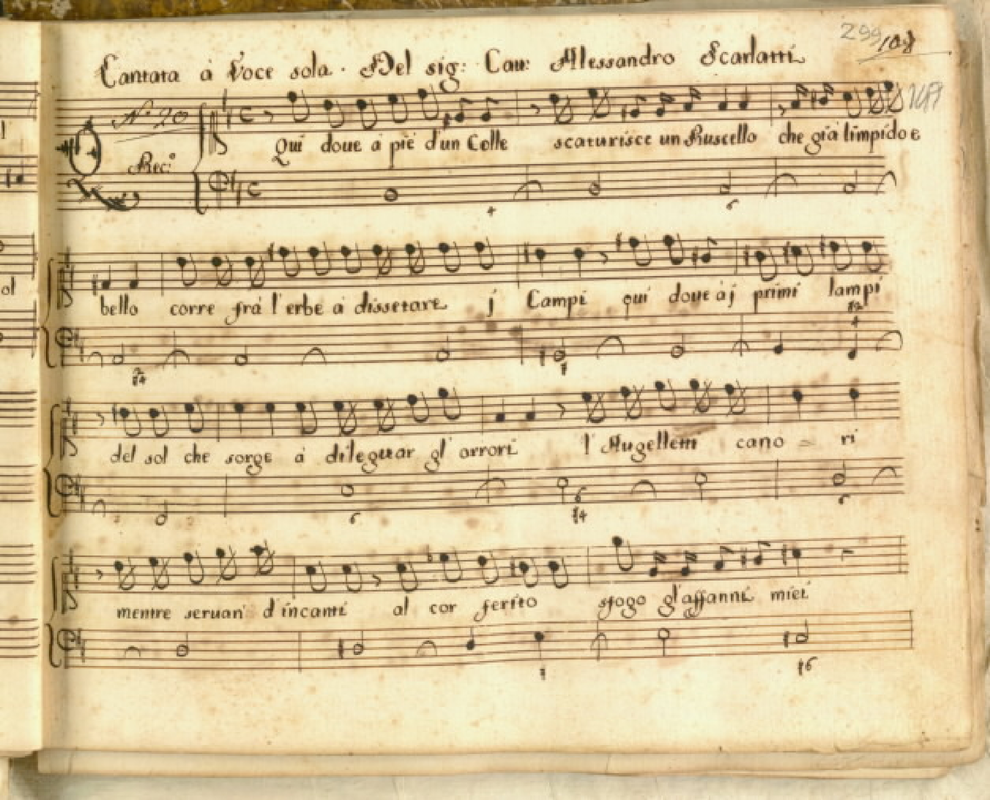 299 108
Cantata à Voce sola. Del sig: Cau: Alessandro Scarlatti
N.º 20
169
Qui doue a piè d'un Colle scaturisce un Ruscello che già limpido e
Rec:º
bello corre frà l'erbe a dissetare i Campi qui doue a i primi lampi
del sol che sorge a dileguar gl'orrori l'Augelletti cano = ri
mentre seruan d'incanti al cor ferito sfogo gl'affanni miei